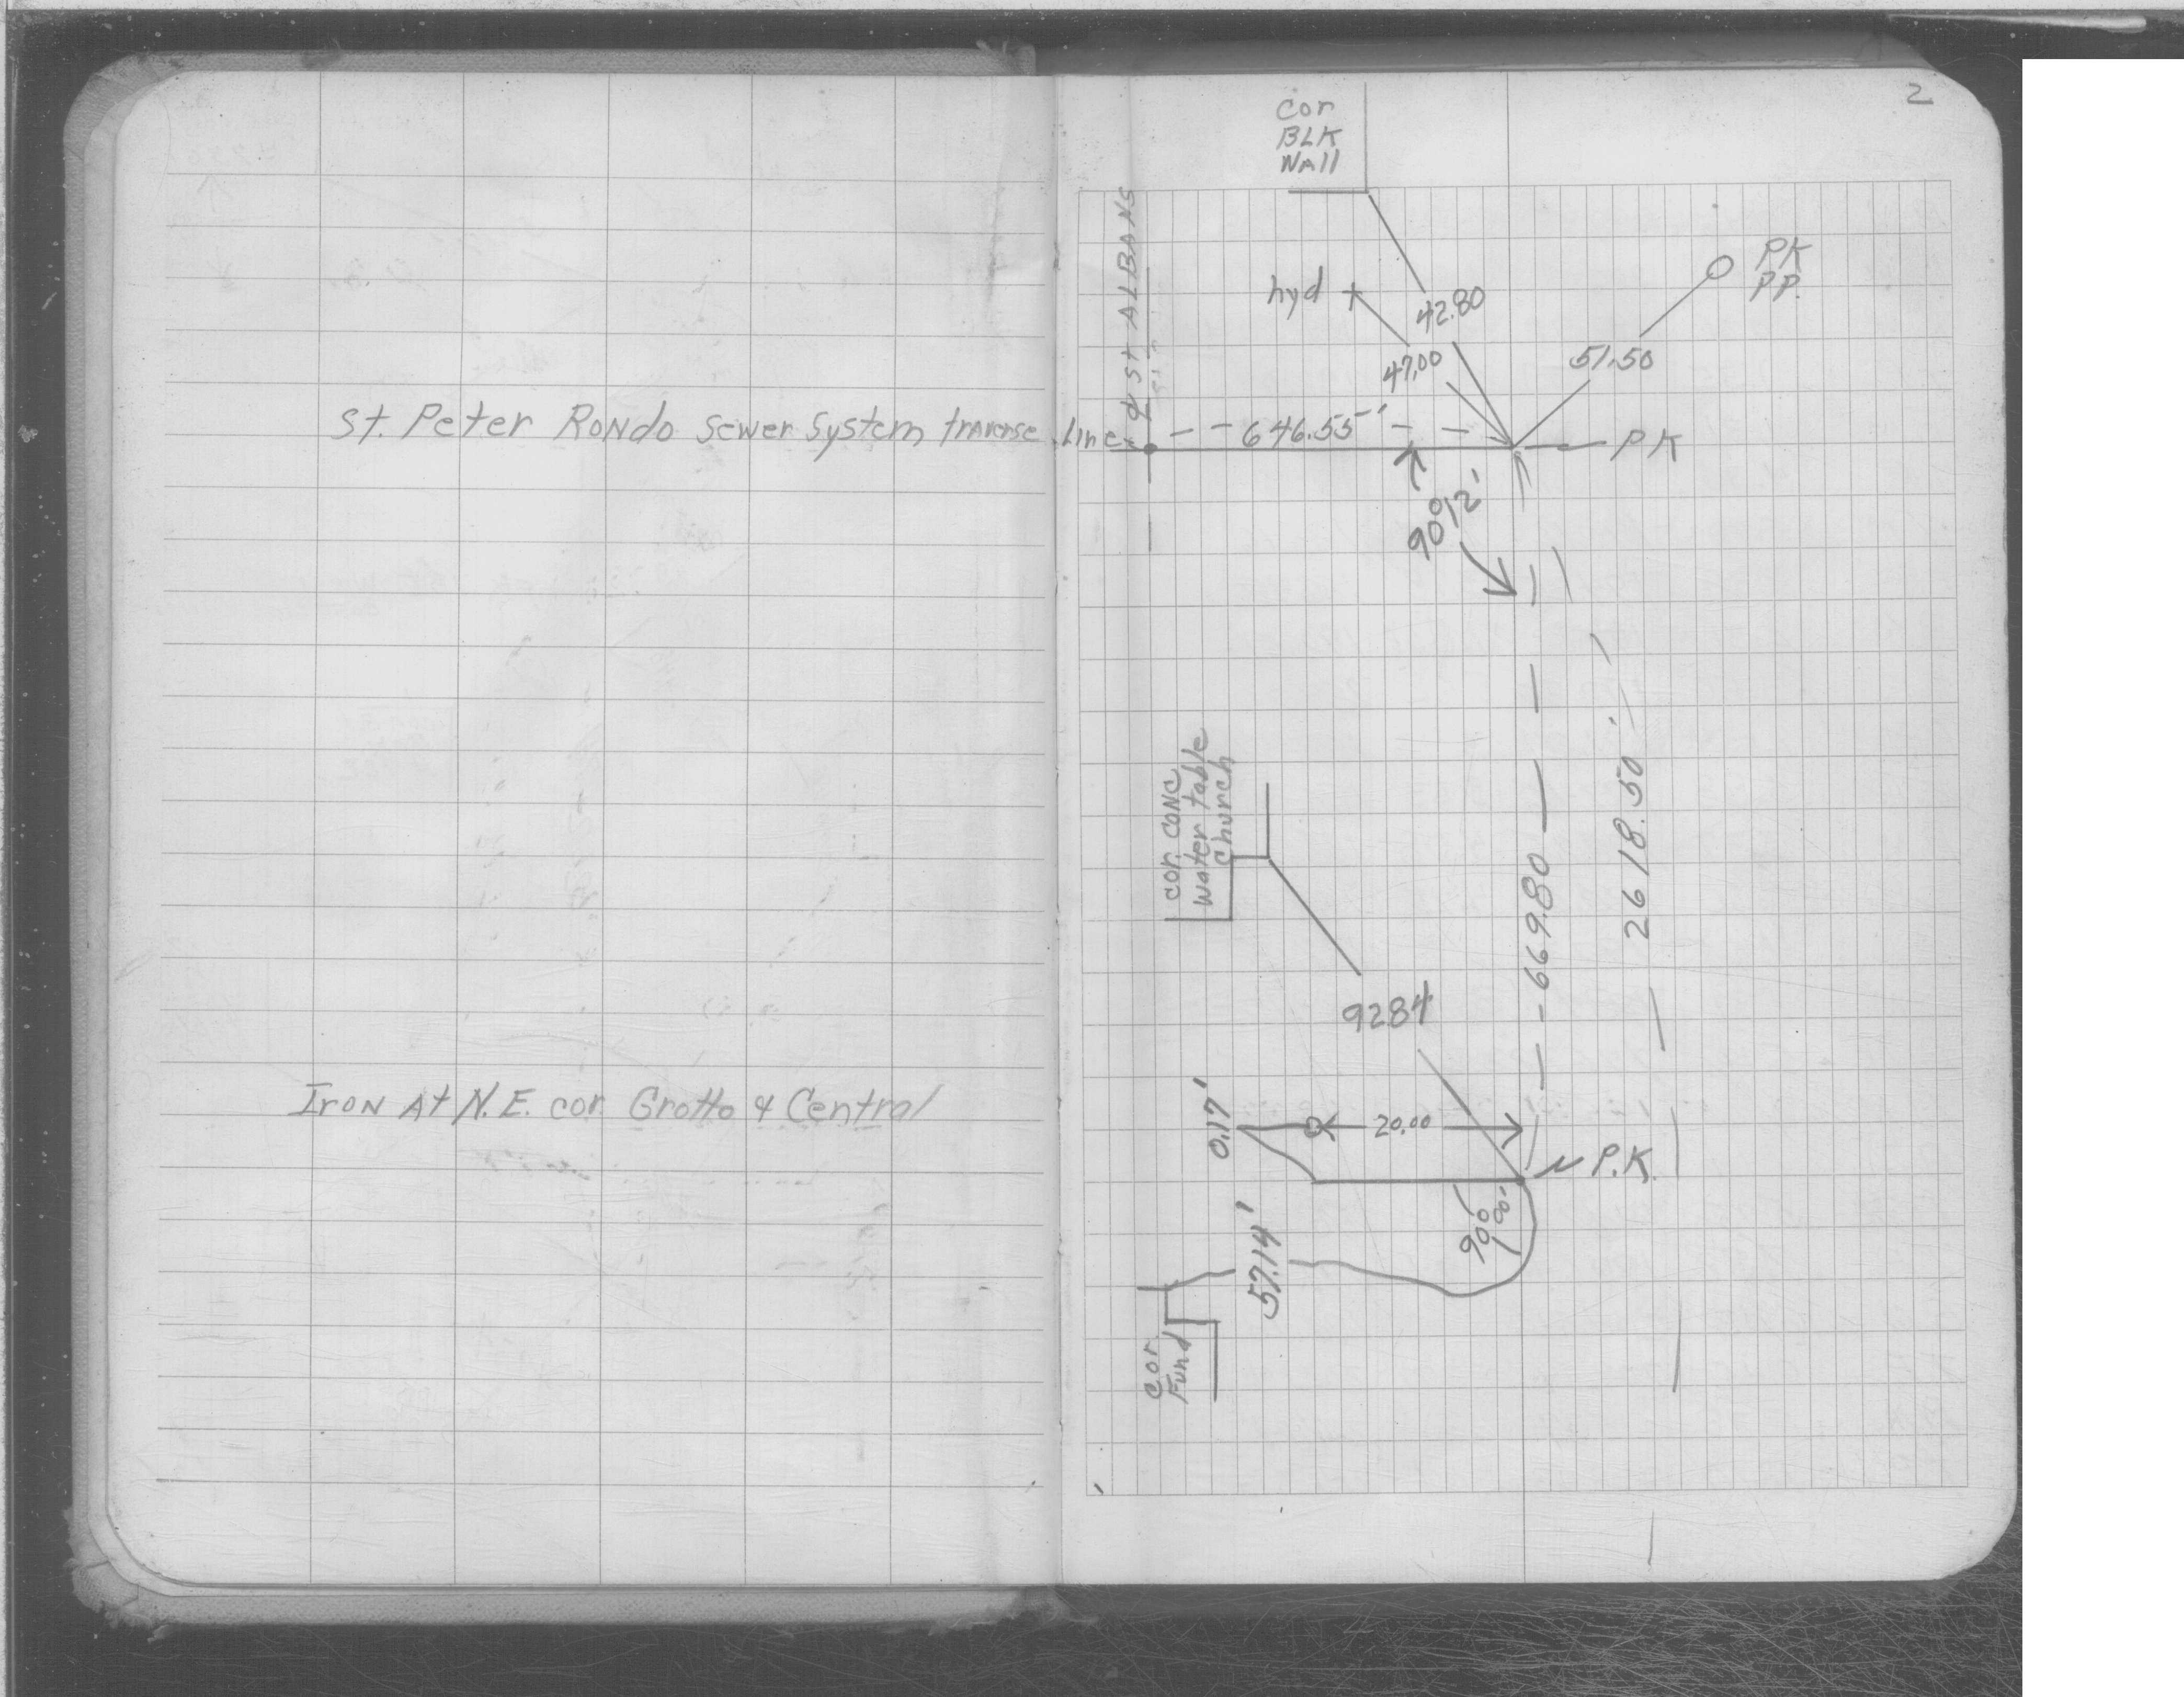 2
Cor
BLK
WAll
℄ St ALBANS
hyd
42.80
PK
PP.
47.00
51.50
St. Peter RONDO Sewer System traverse Line
646.55'
PK
90°12'
cor conc
water table
church
669.80
2618.50'
92.84
Iron At N.E. cor. Grotto & Central
0.17'
20.00
P.K.
57.14'
cor.
Fund